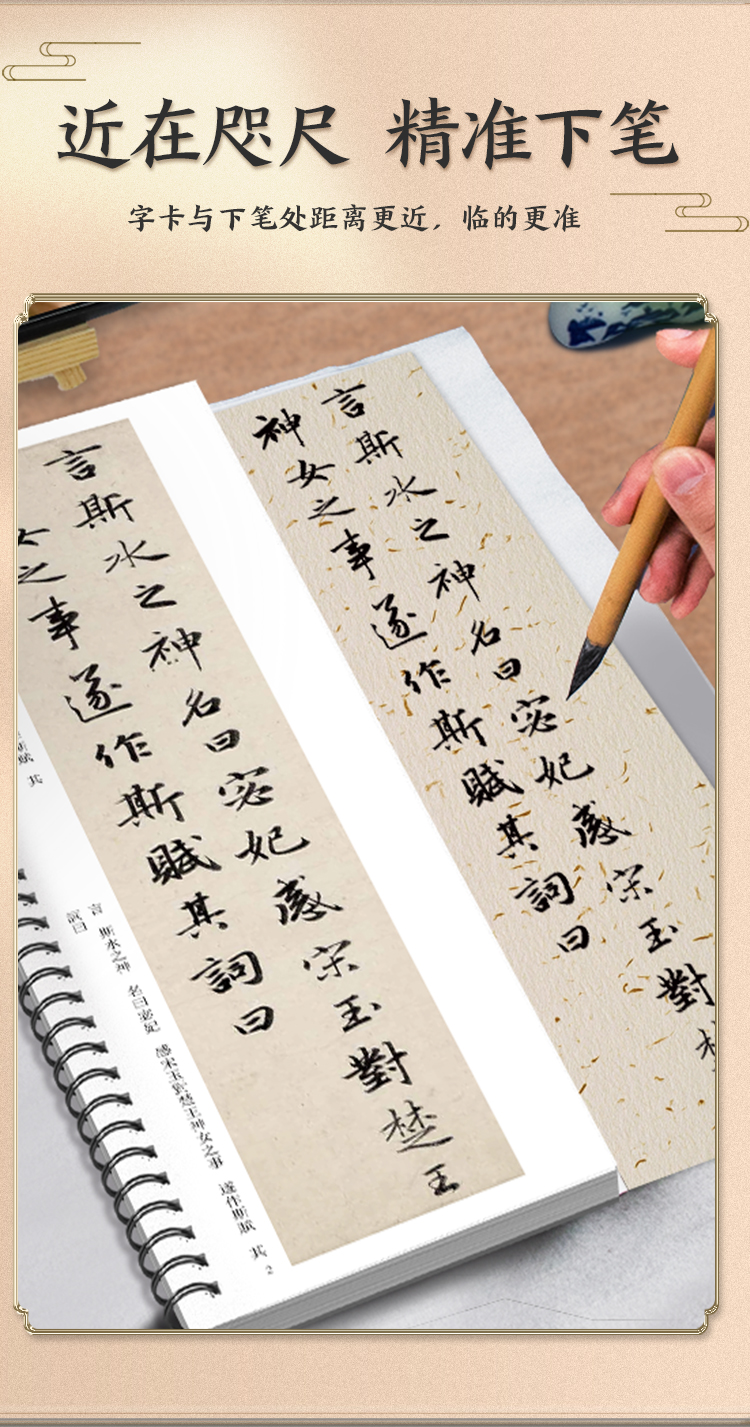 近在咫尺 精准下笔
字卡与下笔处距离更近，临的更准
言斯水之神名曰宓妃感宋玉對楚王
女之事遂作斯賦其詞曰
言斯水之神名曰宓妃感宋玉對楚
神女之事遂作斯賦其詞曰
斯賦 其
言 斯水之神 名曰宓妃 感宋玉對楚王神女之事 遂作斯賦 其
詞曰
2